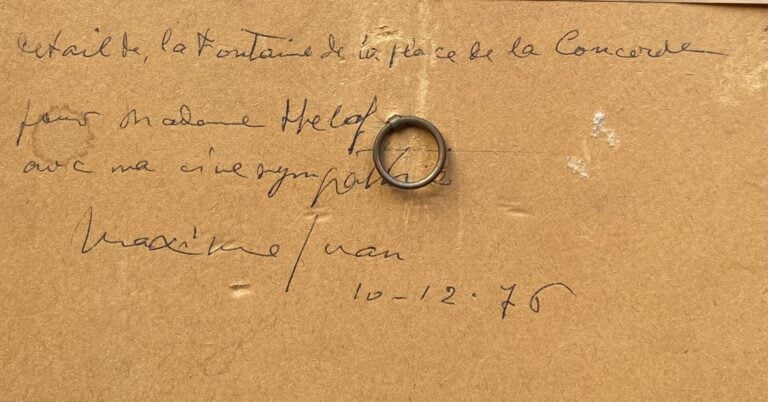 detail de, la Fontaine de la place de la Concorde
pour Madame
avec ma vive sympathie
Maxime Juan
10-12.76